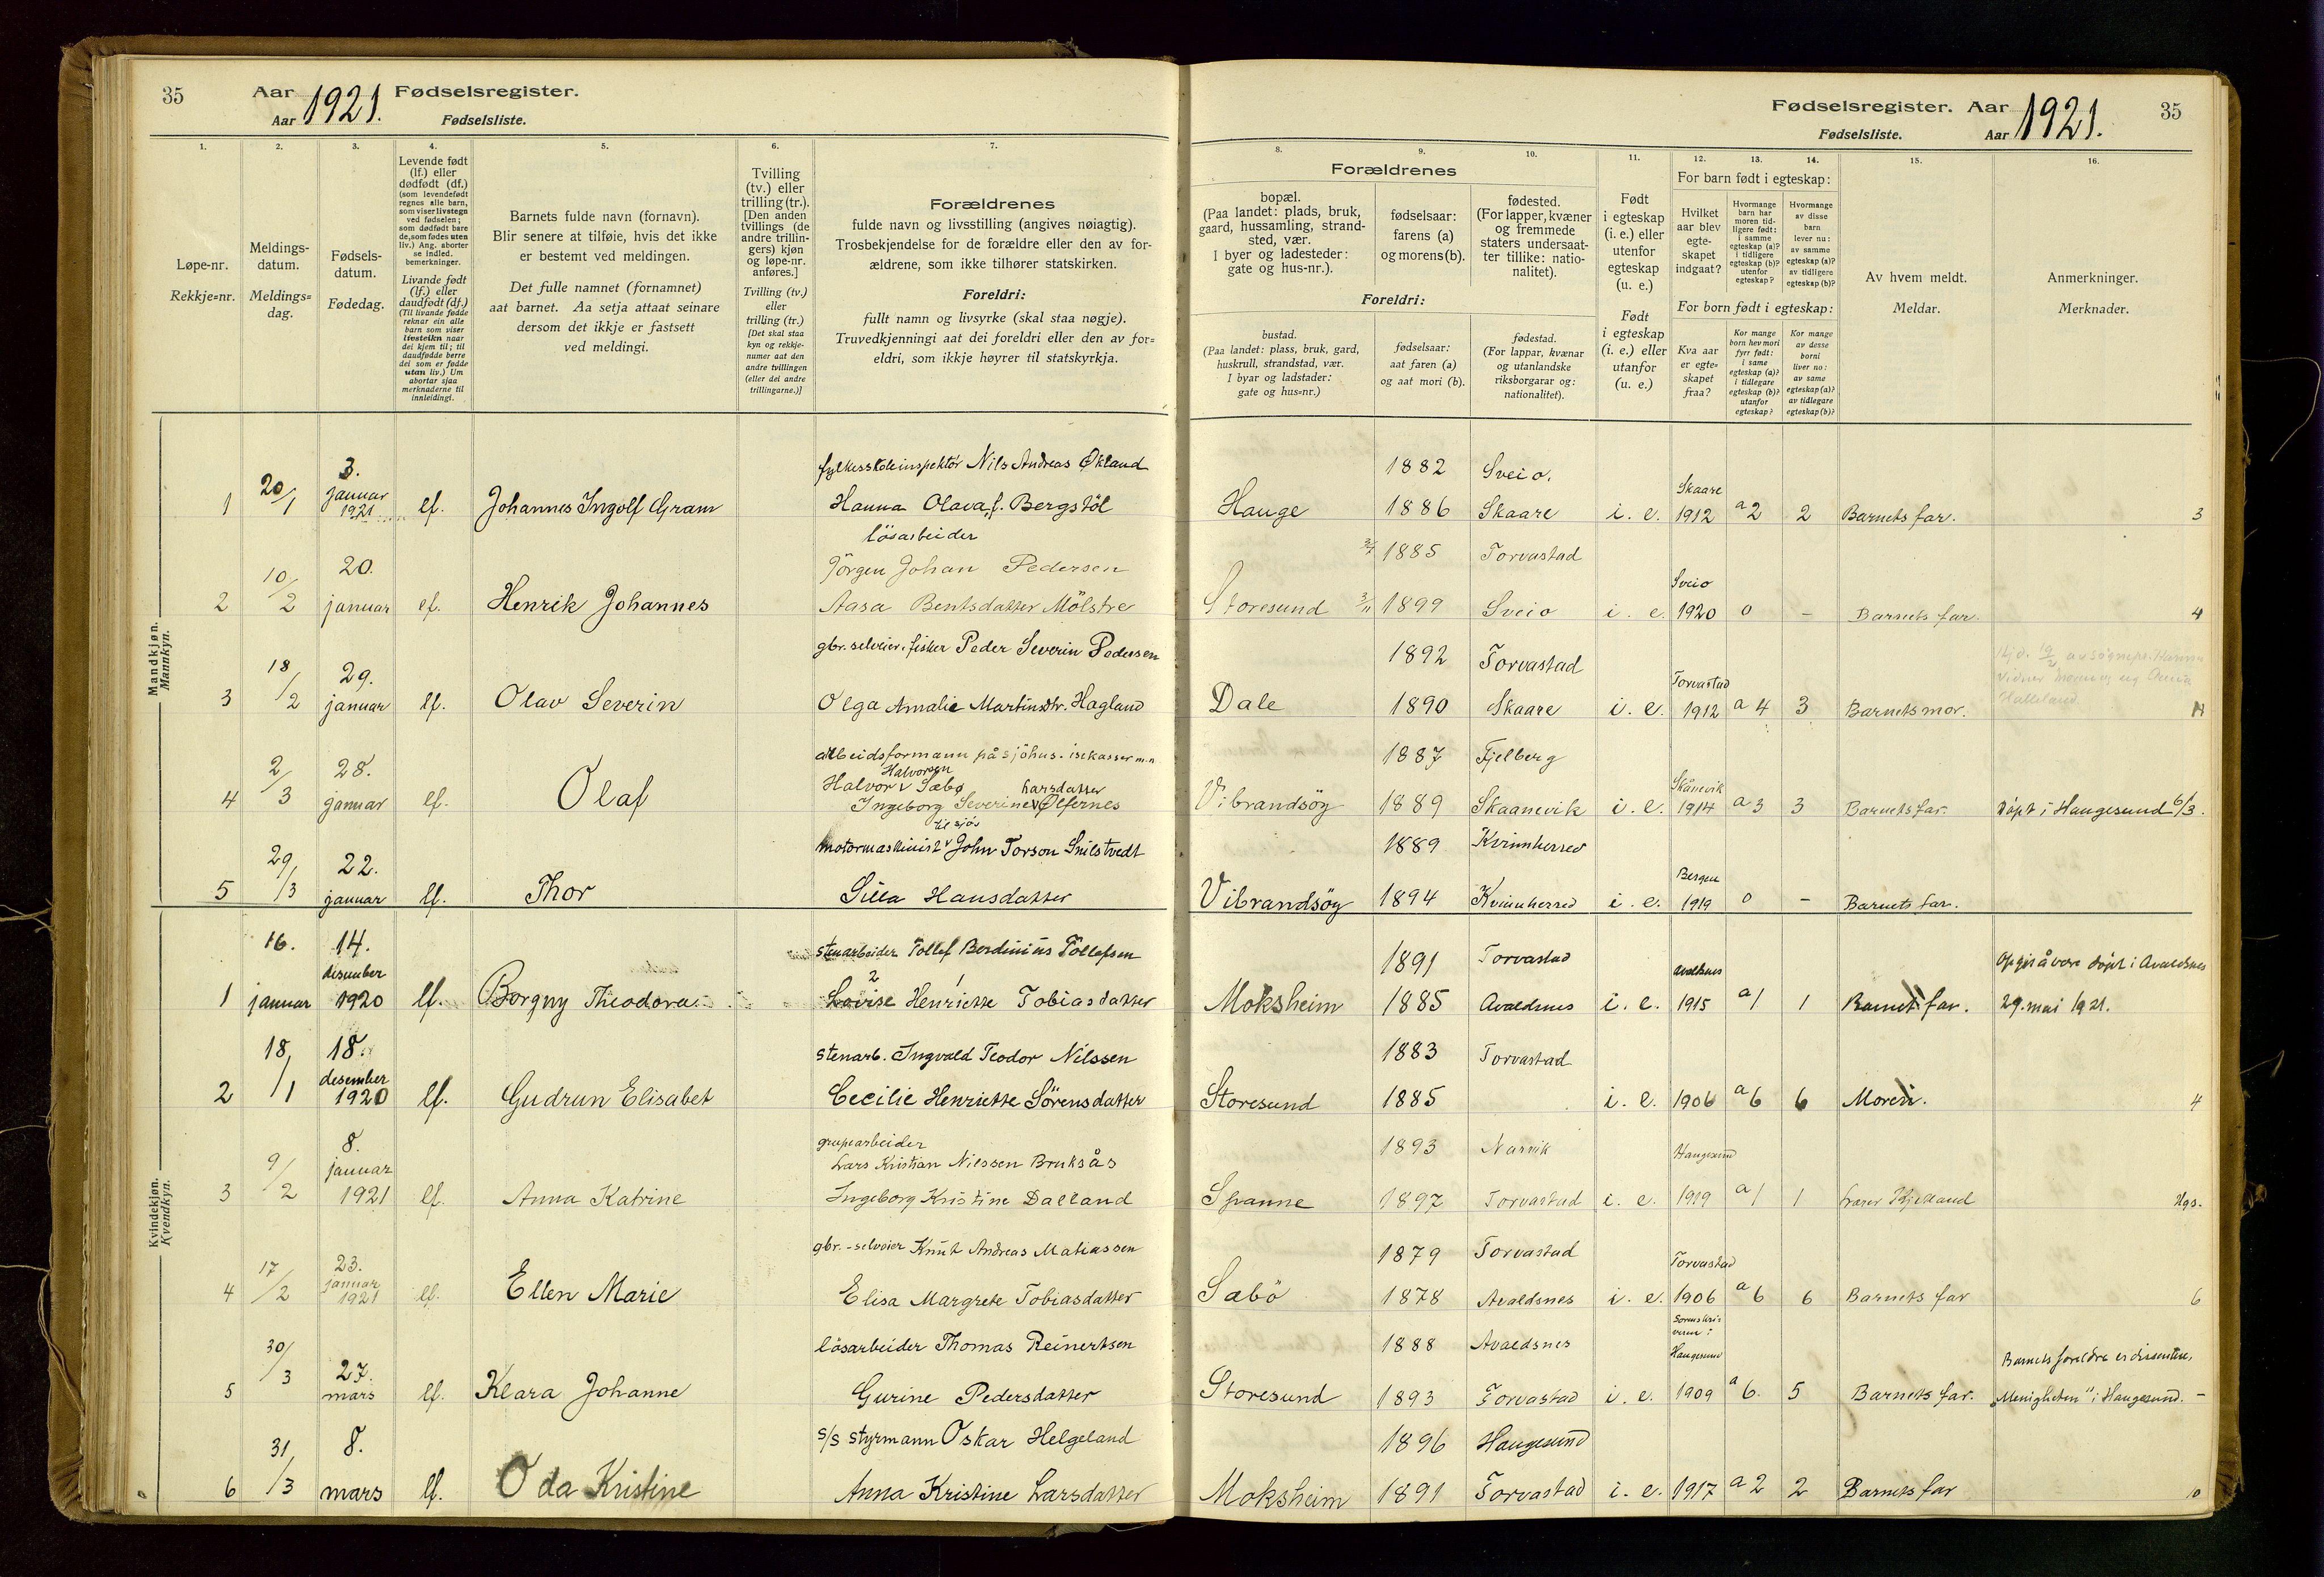 35
Aar 1921. Fødselsregister.
Aar Fødselsliste.
1. 2. 3. 4. 5. 6. 7.
Løpe-nr.
Rekkje=nr.
Meldings-
datum.
Meldings=
dag.
Fødsels-
datum.
Fødedag.
Levende født
(lf.) eller
dødfødt (df.)
(som levendefødt
regnes alle barn,
som viser livstegn
ved fødselen;
som dødfødt bare
de, som fødes uten
liv.) Ang. aborter
se indled.
bemerkninger.
Livande født
(lf.) eller
daudfødt (df.)
(Til livande fødde
reknar ein alle
barn som viser
livsteikn naar
dei kjem til; til
daudfødde berre
dei som er fødde
utan liv.) Um
abortar sjaa
merknaderne til
innleidingi.
Barnets fulde navn (fornavn).
Blir senere at tilføie, hvis det ikke
er bestemt ved meldingen.
Det fulle namnet (fornamnet)
aat barnet. Aa setja attaat seinare
dersom det ikkje er fastsett
ved meldingi.
Tvilling
(tv.) eller
trilling (tr.).
[Den anden
tvillings (de
andre trillin-
gers) kjøn
og løpe-nr.
anføres.]
Tvilling (tv.)
eller
trilling (tr.)
[Det skal staa
kyn og rekkje-
numer aat den
andre tvillingen
(eller dei andre
trillingarne.)]
Forældrenes
fulde navn og livsstilling (angives nøiagtig).
Trosbekjendelse for de forældre eller den av for-
ældrene, som ikke tilhører statskirken.
Foreldri:
fullt namn og livsyrke (skal staa nøgje).
Truvedkjenningi aat dei foreldri eller den av for=
eldri, som ikkje høyrer til statskyrkja.
Mandkjøn.
Mannkyn.
3. fylkesskoleinspektör Nils Andreas Økland
1 20/1 januar 1921 lf. Johannes Ingolf Gram Hanna Olava f. Bergstöl
lösarbeider
20. Jörgen Johan Pedersen
2 10/2 januar lf. Henrik Johannes Aasa Bentsdatter Mölstre
gbr. selveier, fisker Peder Severin Pedersen
29.
3 18/2 januar lf. Olav Severin Olga Amalie Martinsdtr. Hagland
arbeidsformann på sjöhus. isekasser m.m
28. Halvorsen
Halvor v Sæbø Larsdatter
4 2/3 januar lf. Olaf Ingeborg Severine v Ølfernes
til sjøs
22. motormaskinist v John Torson Snilstvedt
5 29/3 januar lf. Thor Silla Hansdatter
Kvindekjøn.
Kvendkyn.
16. 14. stenarbeider Tollef Berdinius Tollefsen
desember 2 1
1 januar 1920 lf. Borgny Theodora Lovise Henriette Tobiasdatter
18. stenarb. Ingvald Teodor Nilssen
desember
2 18/1 1920 lf. Gudrun Elisabet Cecilie Henriette Sörensdatter
8. grupearbeider
januar Lars Kristian Nilssen Bruksås
3 9/2 1921 lf. Anna Katrine Ingeborg Kristine Dalland
23. gbr.-selveier Knut Andreas Matiassen
januar
4 17/2 1921 lf. Ellen Marie Elisa Margrete Tobiasdatter
lösarbeider Thomas Reinertsen
27.
5 30/3 mars lf. Klara Johanne Gurine Pedersdatter
8. s/s styrmann Oskar Helgeland
6 31/3 mars lf. Oda Kristine Anna Kristine Larsdatter
Fødselsregister. Aar 1921. 35
Fødselsliste. Aar
8. 9. 10. 11. 12. 13. 14. 15. 16.
Forældrenes
bopæl.
(Paa landet: plads, bruk,
gaard, hussamling, strand-
sted, vær.
I byer og ladesteder:
gate og hus-nr.).
fødselsaar:
farens (a)
og morens (b).
fødested.
(For lapper, kvæner
og fremmede
staters undersaat-
ter tillike: natio-
nalitet).
Foreldri:
bustad.
(Paa landet: plass, bruk, gard,
huskrull, strandstad, vær.
I byar og ladstader:
gate og hus=nr.)
fødselsaar:
aat faren (a)
og aat mori (b).
fødestad.
(For lappar, kvænar
og utanlandske
riksborgarar og:
nationalitet).
Født
i egteskap
(i. e.) eller
utenfor
egteskap
(u. e.)
Født
i egteskap
(i. e.) eller
utanfor
(u. e.)
For barn født i egteskap:
Hvilket
aar blev
egte-
skapet
indgaat?
Hvormange
barn har
moren tid-
ligere født:
i samme
egteskap (a)?
i tidligere
egteskap (b)?
utenfor
egteskap?
Hvormange
av disse
barn
lever nu:
av samme
egteskap (a)?
av tidligere
egteskap (b)?
For born født i egteskap:
Kva aar
er egte=
skapet
fraa?
Kor mange
born hev mori
fyrr født:
i same
egteskap (a)?
i tidlegare
egteskap (b)?
utanfor
egteskap?
Kor mange
av desse
borni
liver no:
av same
egteskap (a)?
av tidlegare
egteskap (b)?
Av hvem meldt.
Meldar.
Anmerkninger.
Merknader.
1882 Sveio. Skaare
Hauge 1886 Skaare i. e. 1912 a 2 2 Barnets far. 3
1885 Torvastad Sveio
Storesund 1899 Sveio i. e. 1920 0 - Barnets far. 4
1892 Torvastad Torvastad
Dale 1890 Skaare i. e. 1912 a 4 3 Barnets mor.
1887 Fjelberg Skånevik
Vibrandsöy 1889 Skaanevik i. e. 1914 a 3 3 Barnets far. Döpt i Haugesund 6/3.
1889 Kvinnherred Bergen
Vibrandsöy 1894 Kvinnherred i. e. 1919 0 - Barnets far.
1891 Torvastad Avaldsnes Opgis å være döpt i Avaldsnes
Moksheim 1885 Avaldsnes i. e. 1915 a 1 1 Barnets far. 29. mai 1921.
1883 Torvastad
Storesund 1885 i. e. 1906 a 6 6 Moren. 4
1893 Narvik Haugesund
Spanne 1897 Torvastad i. e. 1919 a 1 1 Hgs.
1879 Torvastad Torvastad
Sæbö 1878 Avaldsnes i. e. 1906 a 6 6 Barnets far 6
1888 Avaldsnes Sorenskri-
veren i
Haugesund Barnets foreldre er dissentere,
Storesund 1893 Torvastad i. e. 1909 a 6. 5 Barnets far. „Menigheten" i Haugesund. -
1896 Haugesund
Moksheim 1891 Torvastad i. e. 1917 a 2 2 Barnets far 10